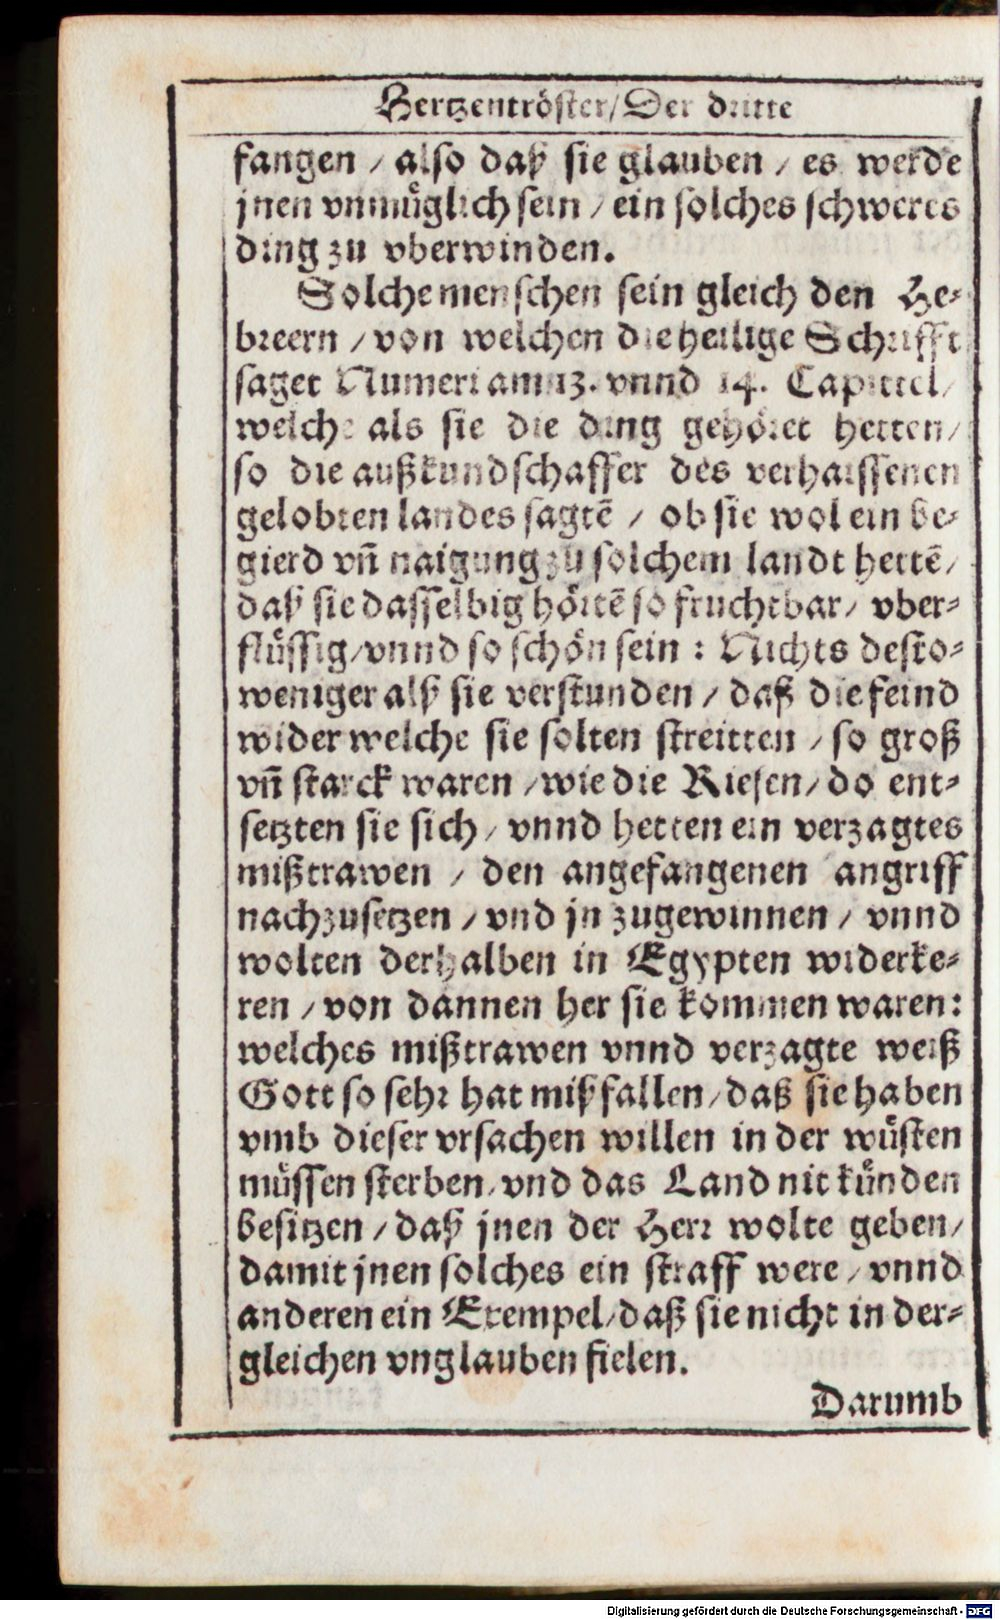 Hertzentröster/Der dritte
fangen / also daß sie glauben / es werde
jnen vnmüglich sein / ein solches schweres
ding zu vberwinden.
Solche menschen sein gleich den He-
breern / von welchen die heilige Schrifft
saget Numeri am 13. vnnd 14. Capittel/
welche als sie die ding gehöret hetten/
so die außkundschaffer des verhaissenen
gelobten landes sagtē / ob sie wol ein be-
gierd vñ naigung zu solchem landt hettē/
daß sie dasselbig hörtē so fruchtbar/ vber-
flüssig/vnnd so schön sein : Nichts desto-
weniger alß sie verstunden / daß die feind
wider welche sie solten streitten / so groß
vñ starck waren /wie die Riesen/ do ent-
setzten sie sich / vnnd hetten ein verzagtes
mißtrawen / den angefangenen angriff
nachzusetzen / vnd jn zugewinnen / vnnd
wolten derhalben in Egypten widerke-
ren / von dannen her sie kommen waren:
welches mißtrawen vnnd verzagte weiß
Gott so sehr hat mißfallen/daß sie haben
vmb dieser vrsachen willen in der wüsten
müssen sterben/vnd das Land nit künden
besitzen / daß jnen der Herr wolte geben/
damit jnen solches ein straff were / vnnd
anderen ein Exempel/daß sie nicht in der-
gleichen vnglauben fielen.
Darumb
Digitalisierung gefördert durch die Deutsche Forschungsgemeinschaft - DFG